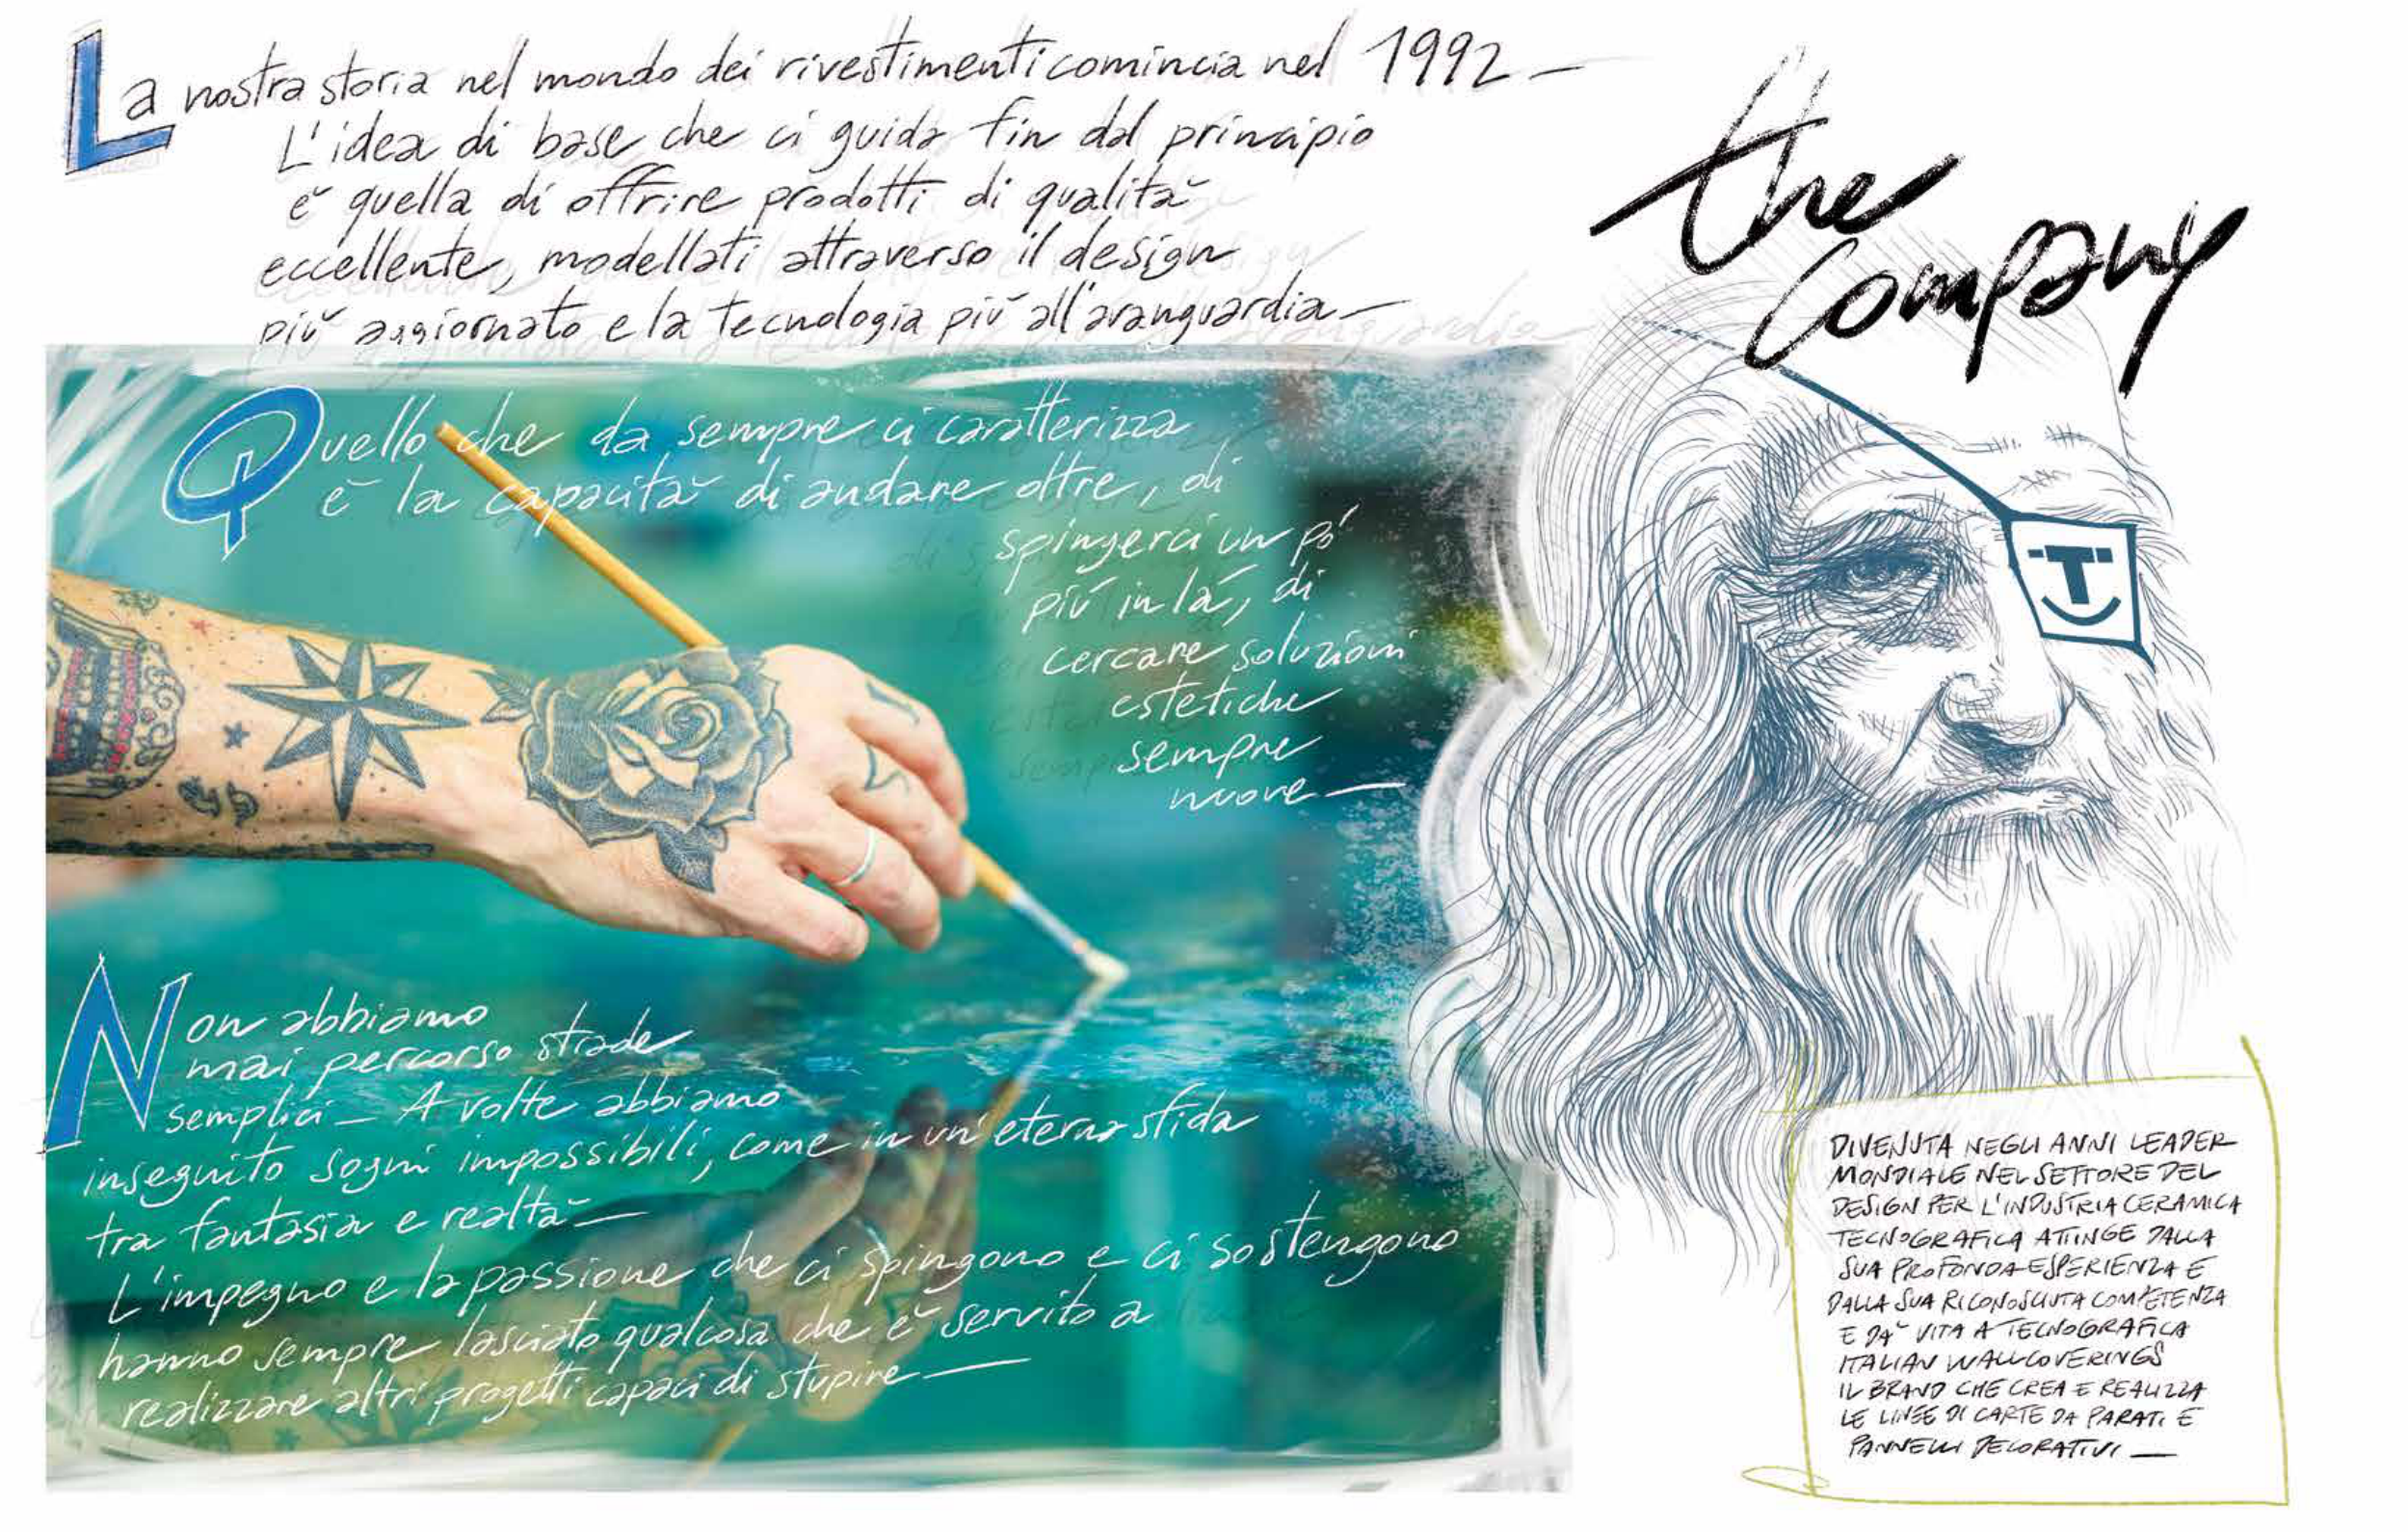 La nostra storia nel mondo dei rivestimenti comincia nel 1992 –
L'idea di base che ci guida fin dal principio
è quella di offrire prodotti di qualità
eccellente, modellati attraverso il design
più aggiornato e la tecnologia più all'avanguardia –
the
Company
Quello che da sempre ci caratterizza
è la capacità di andare oltre, di
spingerci un pó
più in là, di
cercare soluzioni
estetiche
sempre
nuove –
T
Non abbiamo
mai percorso strade
semplici – A volte abbiamo
inseguito sogni impossibili, come in un'eterna sfida
tra fantasia e realtà –
L'impegno e la passione che ci spingono e ci sostengono
hanno sempre lasciato qualcosa che è servito a
realizzare altri progetti capaci di stupire –
DIVENUTA NEGLI ANNI LEADER
MONDIALE NEL SETTORE DEL
DESIGN PER L'INDUSTRIA CERAMICA
TECNOGRAFICA ATTINGE DALLA
SUA PROFONDA ESPERIENZA E
DALLA SUA RICONOSCIUTA COMPETENZA
E DÀ VITA A TECNOGRAFICA
ITALIAN WALLCOVERINGS
IL BRAND CHE CREA E REALIZZA
LE LINEE DI CARTE DA PARATI E
PANNELLI DECORATIVI –